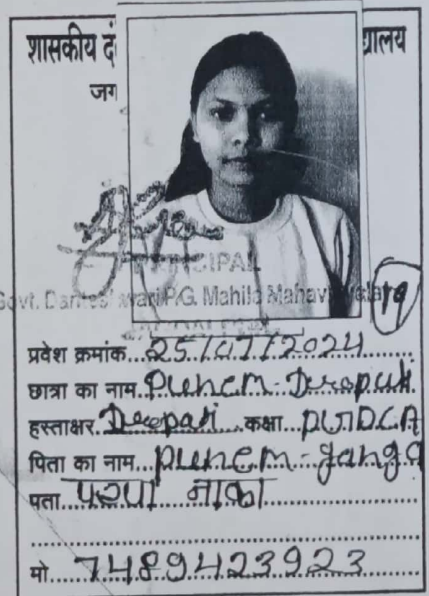 शासकीय दं यालय
जग
PRINCIPAL
Govt. Danteshwari P.G. Mahila Mahavidyalaya
19
प्रवेश क्रमांक...25/07/2024
छात्रा का नाम..Punem-Deepati
हस्ताक्षर..Deepati..कक्षा..PGDCA
पिता का नाम...punem-ganga
पता...परपा नाका
मो....7489423923